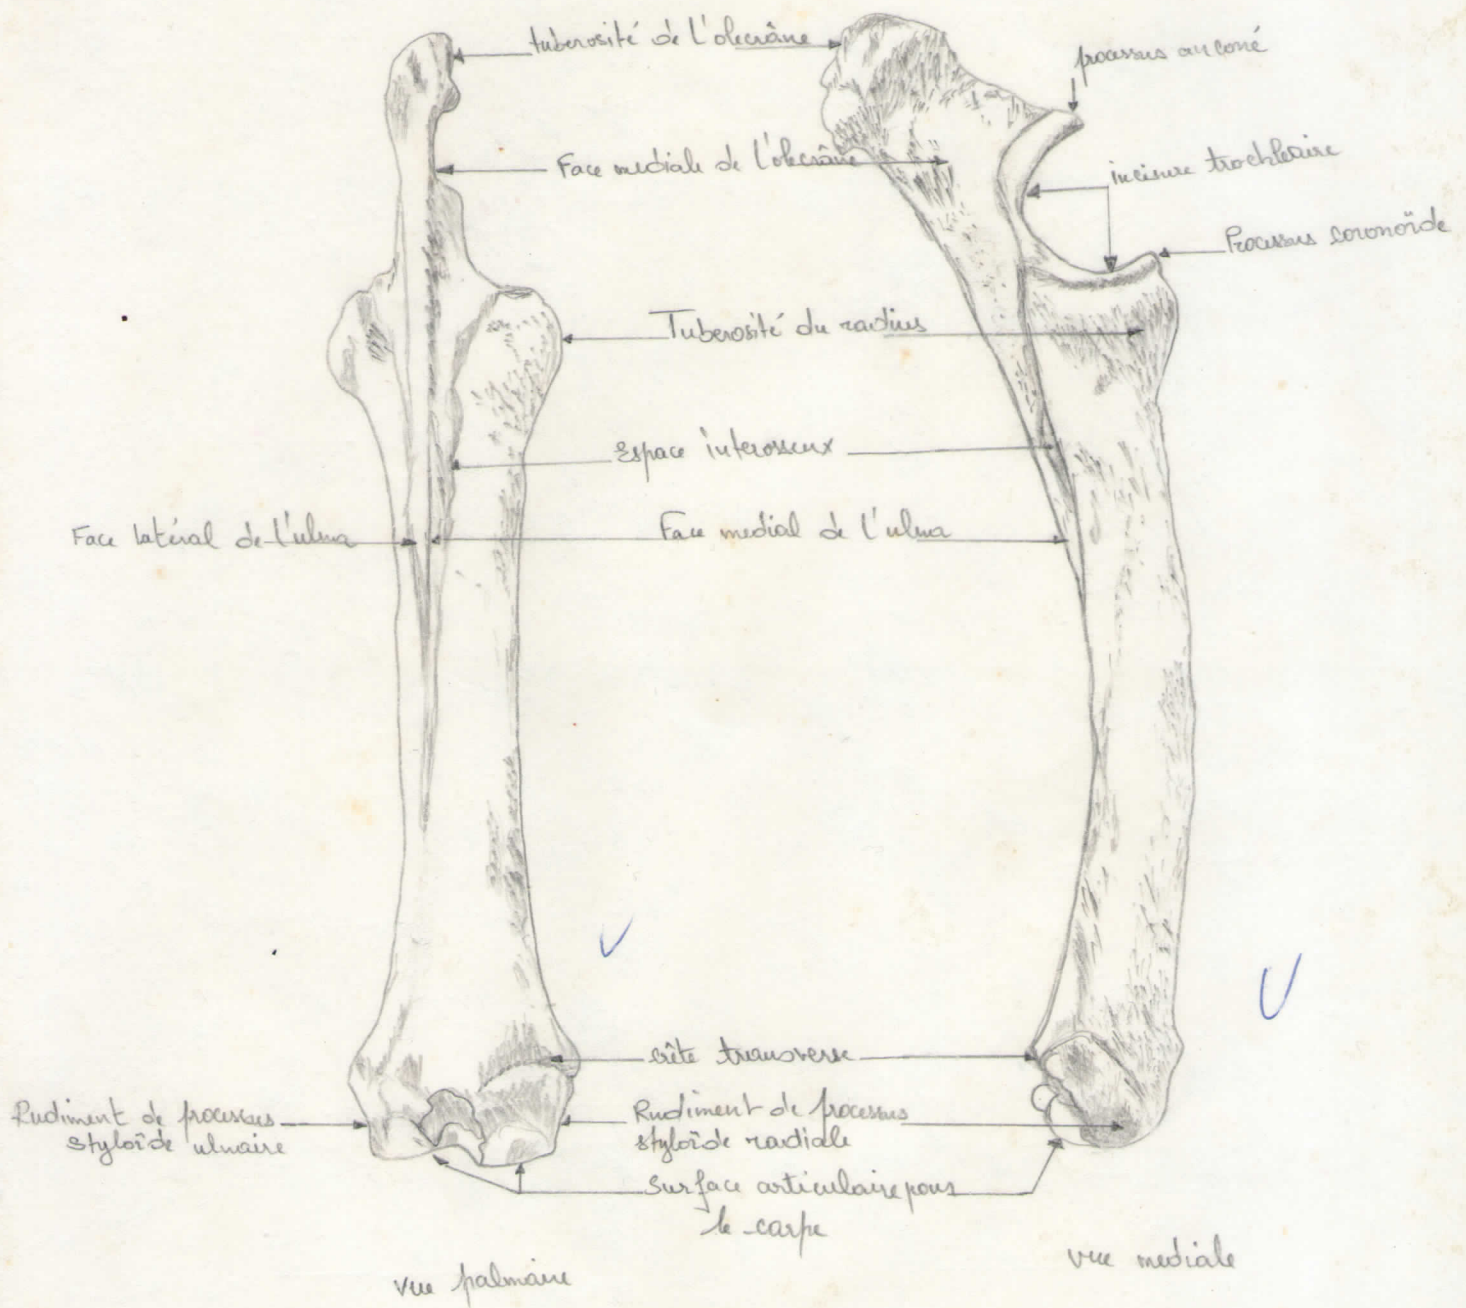 tuberosité de l'olecrâne
processus anconé
Face mediale de l'olecrâne
incisure trochleaire
Processus coronoïde
Tuberosité du radius
Espace interosseux
Face latéral de l'ulna
Face medial de l'ulna
crête transverse
Rudiment de processus
styloïde ulnaire
Rudiment de processus
styloïde radiale
Surface articulaire pour
le carpe
vue palmaire
vue mediale